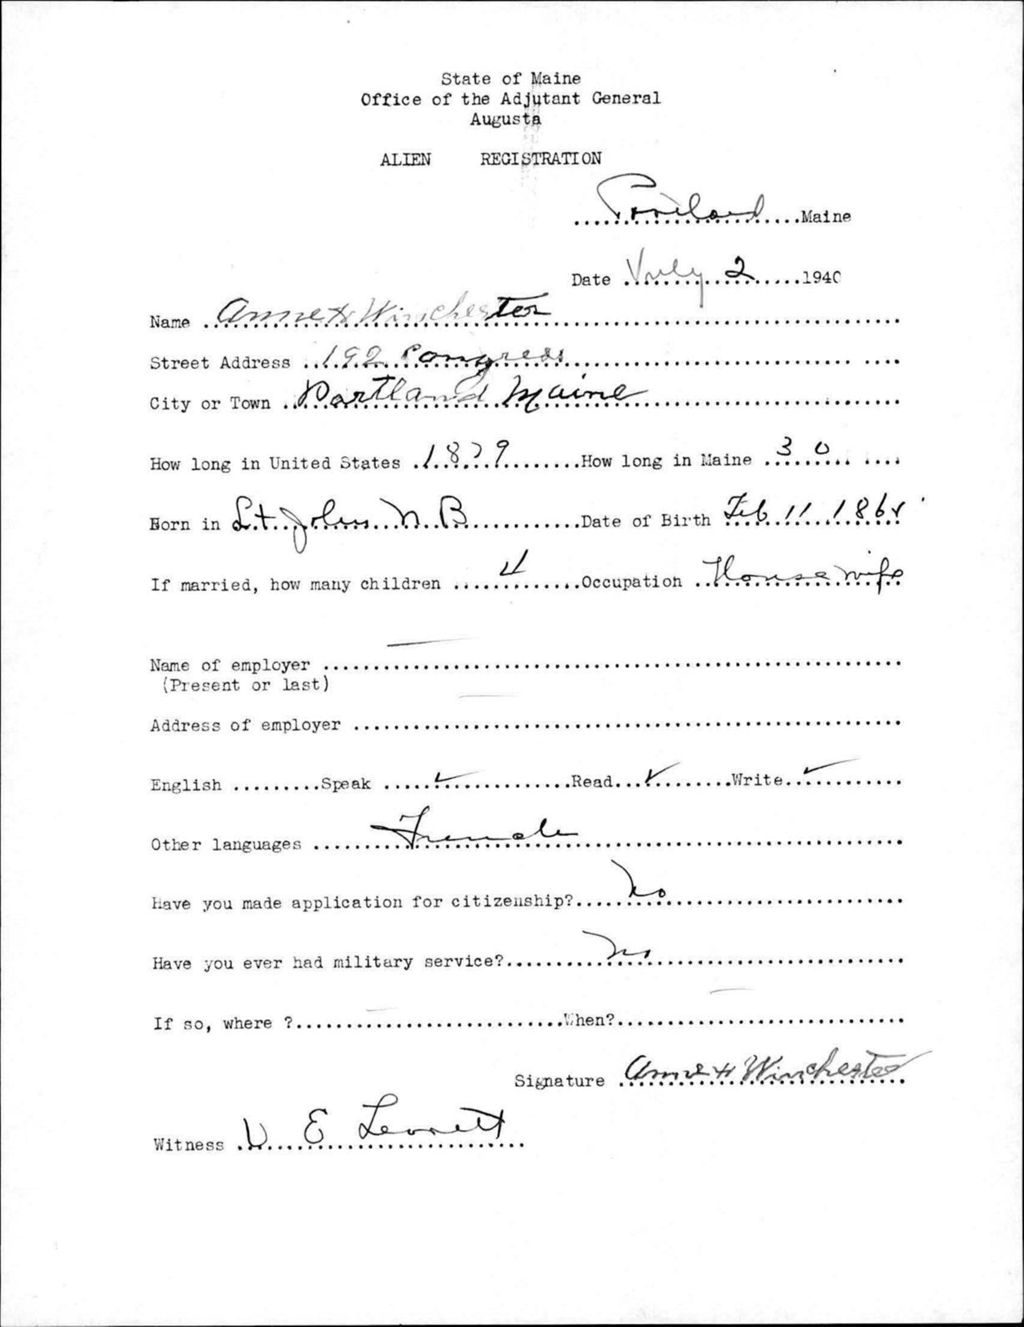 State of Maine
Office of the Adjutant General
Augusta
ALIEN REGISTRATION
Portland Maine
Date July 2 1940
Name Anne H Winchester
Street Address 192 Congress
City or Town Portland Maine
How long in United States 1879 How long in Maine 30
Born in St John N B Date of Birth Feb 11 1864
If married, how many children 4 Occupation House wife
Name of employer
(Present or last)
Address of employer
English Speak ✓ Read ✓ Write ✓
Other languages French
Have you made application for citizenship? No
Have you ever had military service? No
If so, where ? When?
Signature Anne H Winchester
Witness E Leavitt